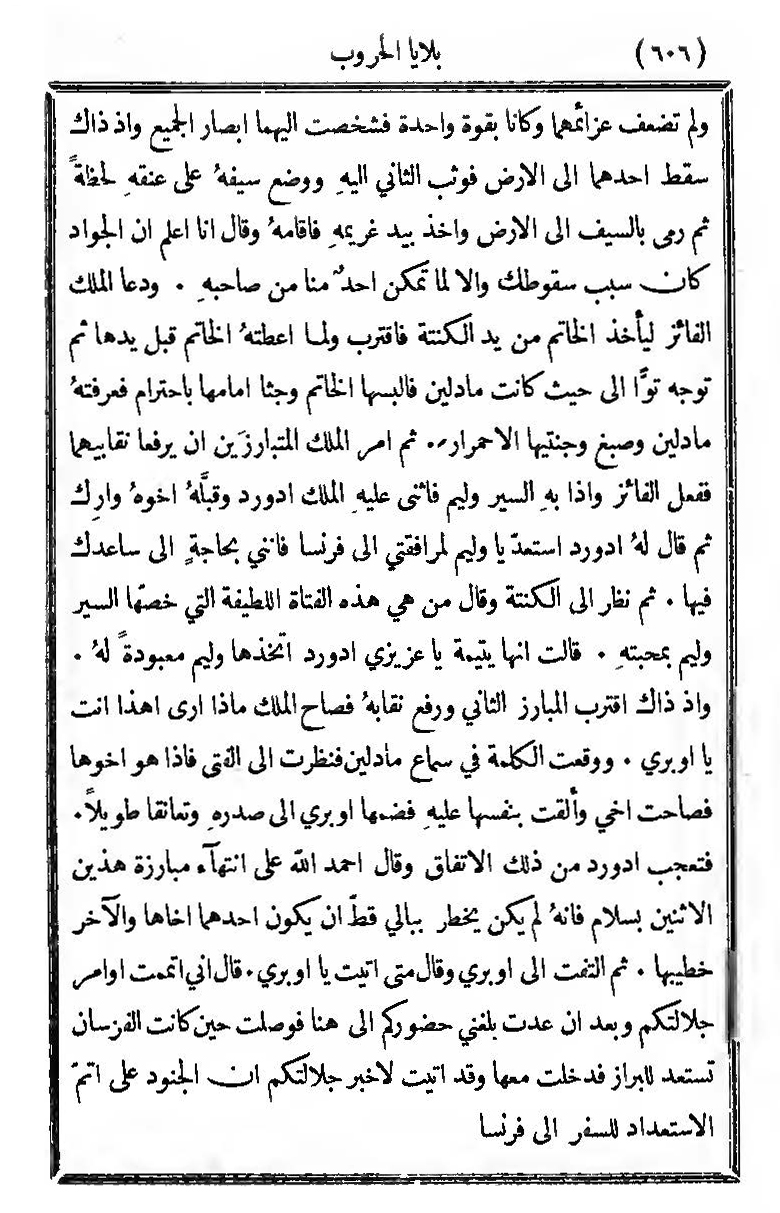 (٦٠٦) بلايا الحروب
ولم تضعف عزائمهما وكانا بقوة واحدة فشخصت اليهما ابصار الجميع واذ ذاك
سقط احدهما الى الارض فوثب الثاني اليهِ ووضع سيفهُ على عنقهِ لحظةً
ثم رمى بالسيف الى الارض واخذ بيد غريمهِ فاقامهُ وقال انا اعلم ان الجواد
كان سبب سقوطك والا لما تمكن احدٌ منا من صاحبهِ . ودعا الملك
الفائز ليأخذ الخاتم من يد الكنتة فاقترب ولما اعطتهُ الخاتم قبل يدها ثم
توجه توًّا الى حيث كانت مادلين فالبسها الخاتم وجثا امامها باحترام فعرفتهُ
مادلين وصبغ وجنتيها الاحمرار .. ثم امر الملك المتبارزَين ان يرفعا نقابيهما
ففعل الفائز واذا بهِ السير وليم فاثنى عليهِ الملك ادورد وقبَّلهُ اخوهُ وارِك
ثم قال لهُ ادورد استعدّ يا وليم لمرافقتي الى فرنسا فانني بحاجةٍ الى ساعدك
فيها . ثم نظر الى الكنتة وقال من هي هذه الفتاة اللطيفة التي خصّها السير
وليم بمحبتهِ . قالت انها يتيمة يا عزيزي ادورد اتخذها وليم معبودةً لهُ .
واذ ذاك اقترب المبارز الثاني ورفع نقابهُ فصاح الملك ماذا ارى اهذا انت
يا اوبري . ووقعت الكلمة في سماع مادلين فنظرت الى الفتى فاذا هو اخوها
فصاحت اخي وألقت بنفسها عليهِ فضمها اوبري الى صدرهِ وتعانقا طويلاً.
فتعجب ادورد من ذلك الاتفاق وقال احمد الله على انتهآء مبارزة هذين
الاثنين بسلام فانهُ لم يكن يخطر ببالي قطّ ان يكون احدهما اخاها والآخر
خطيبها . ثم التفت الى اوبري وقال متى اتيت يا اوبري . قال اني اتممت اوامر
جلالتكم وبعد ان عدت بلغني حضوركم الى هنا فوصلت حين كانت الفرسان
تستعد للبراز فدخلت معها وقد اتيت لاخبر جلالتكم ان الجنود على اتمّ
الاستعداد للسفر الى فرنسا